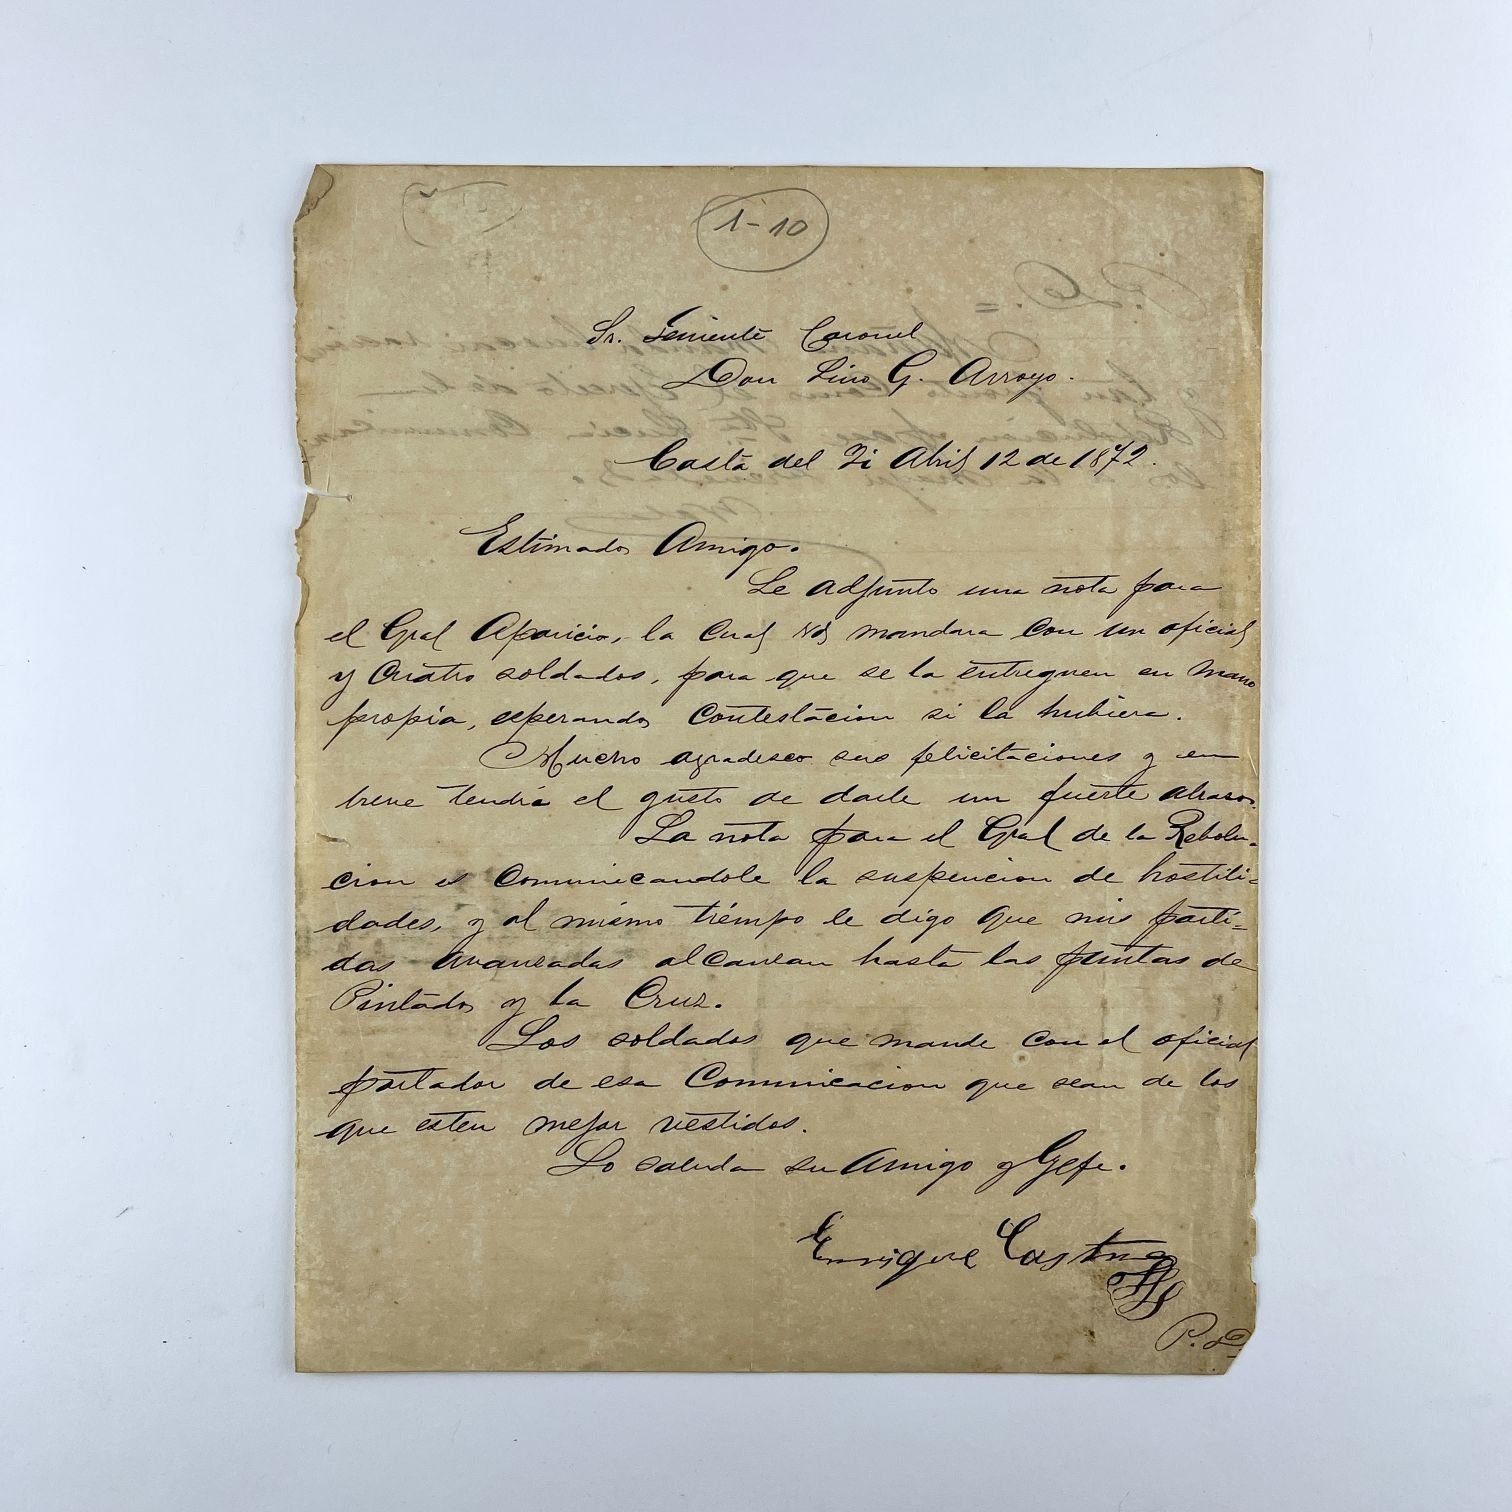 1-10
Sr. Teniente Coronel
Don Lino G. Arroyo.
Costa del Yi Abril 12 de 1872.
Estimado Amigo.
Le adjunto una nota para
el Gral Aparicio, la cual Vd mandara con un oficial
y cuatro soldados, para que se la entreguen en mano
propia, esperando contestacion si la hubiera.
Mucho agradesco sus felicitaciones y en
breve tendré el gusto de darle un fuerte abraso.
La nota para el Gral de la Rebolu-
cion es comunicandole la suspencion de hostili=
dades, y al mismo tiémpo le digo que mis parti=
das avansadas alcansan hasta las puntas de
Pintado y la Cruz.
Los soldados que mande con el oficial
portador de esa Comunicacion que sean de los
que esten mejor vestidos.
Lo saluda su Amigo y Gefe.
Enrique Castro
P.D.